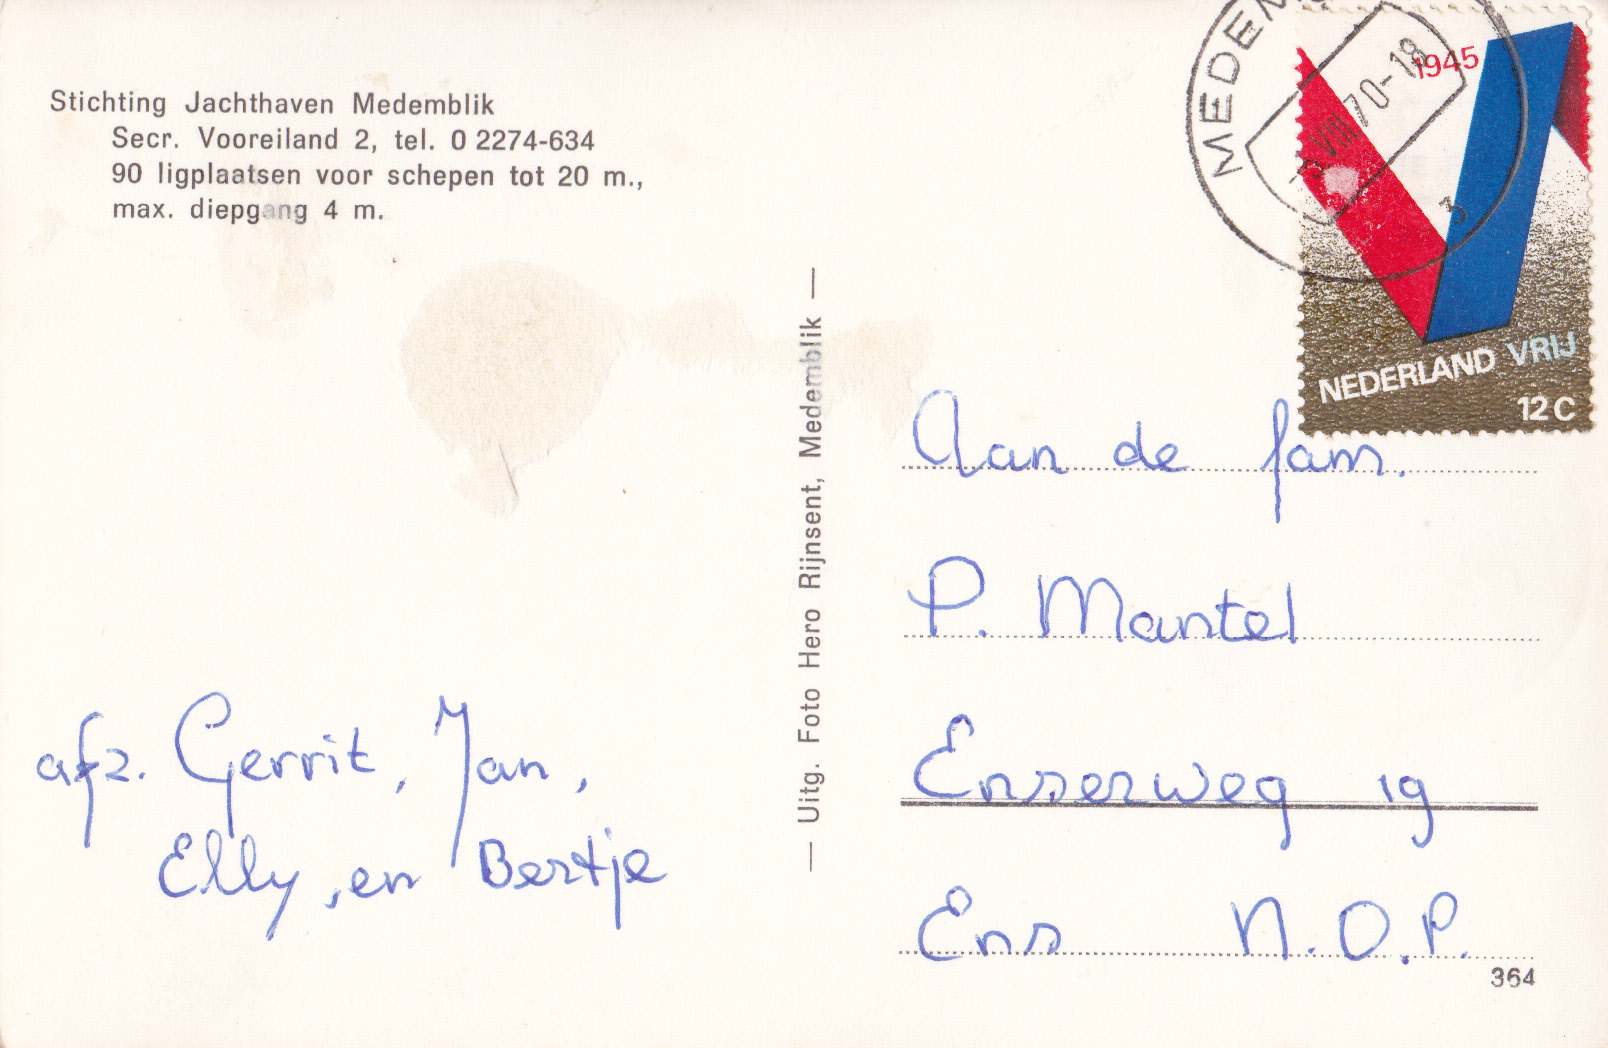 Stichting Jachthaven Medemblik
Secr. Vooreiland 2, tel. 0 2274-634
90 ligplaatsen voor schepen tot 20 m.,
max. diepgang 4 m.
afz. Gerrit, Jan,
Elly, en Bertje
— Uitg. Foto Hero Rijnsent, Medemblik —
MEDEM
VIII 70-18
3
1945
NEDERLAND VRIJ
12 C
Aan de fam.
P. Mantel
Enserweg 19
Ens N.O.P.
364